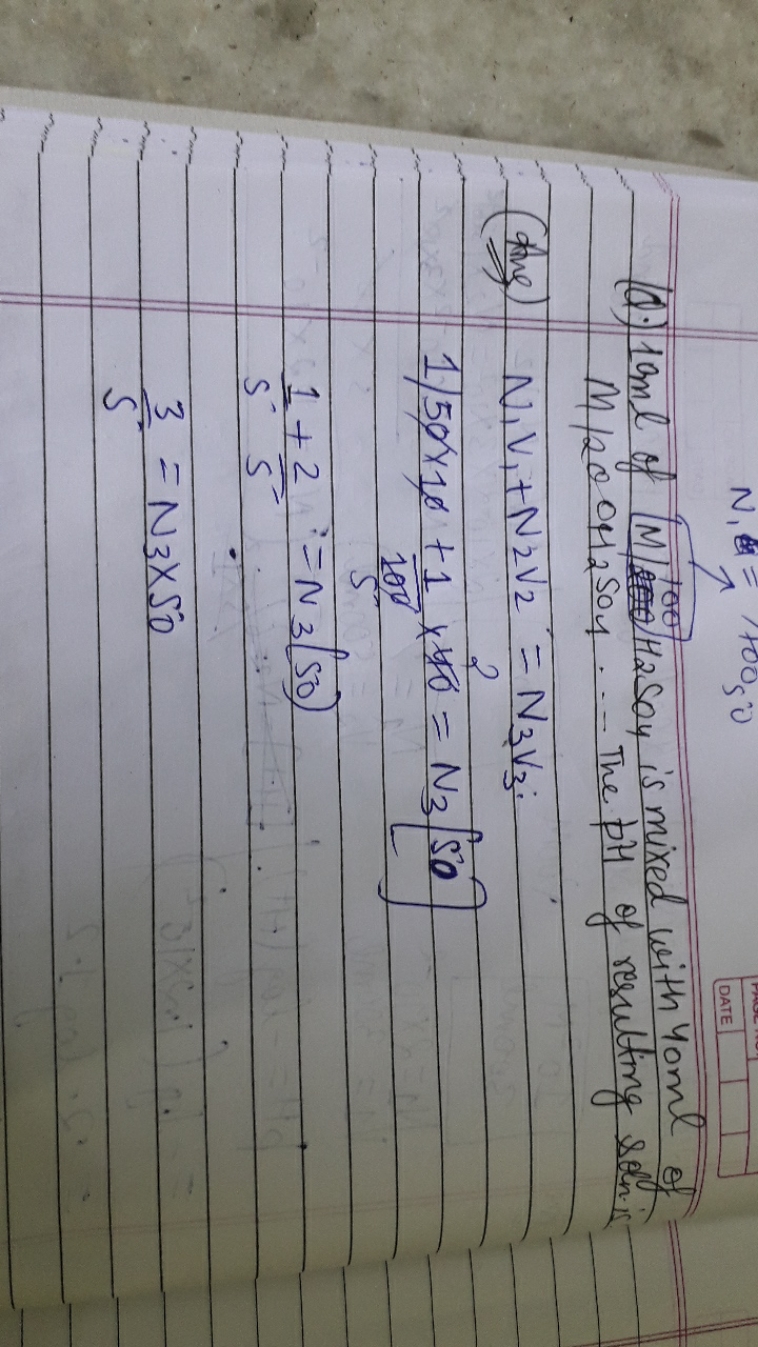 PAGE NO
DATE
N1 = 1/100 50
(Q.) 10ml of M/100 H2SO4 is mixed with 40ml of
M/200 H2SO4 .... The pH of resulting soln. is
(Ans) N1V1 + N2V2 = N3V3.
1/50 x 10 + 1/100 x 40 = N3 [50]
5 2
1/5 + 2/5 = N3 (50)
3/5 = N3 x 50